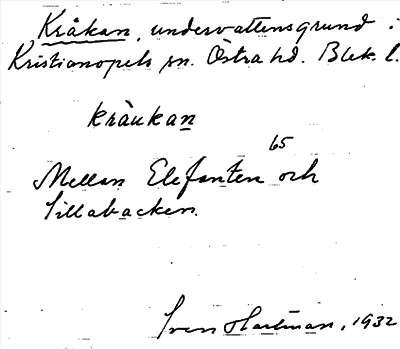 Kråkan, undervattensgrund i
Kristianopels sn. Östra hd. Blek. l.
kråukan
65
Mellan Elefanten och
Sillabacken.
Sven Hartman, 1932